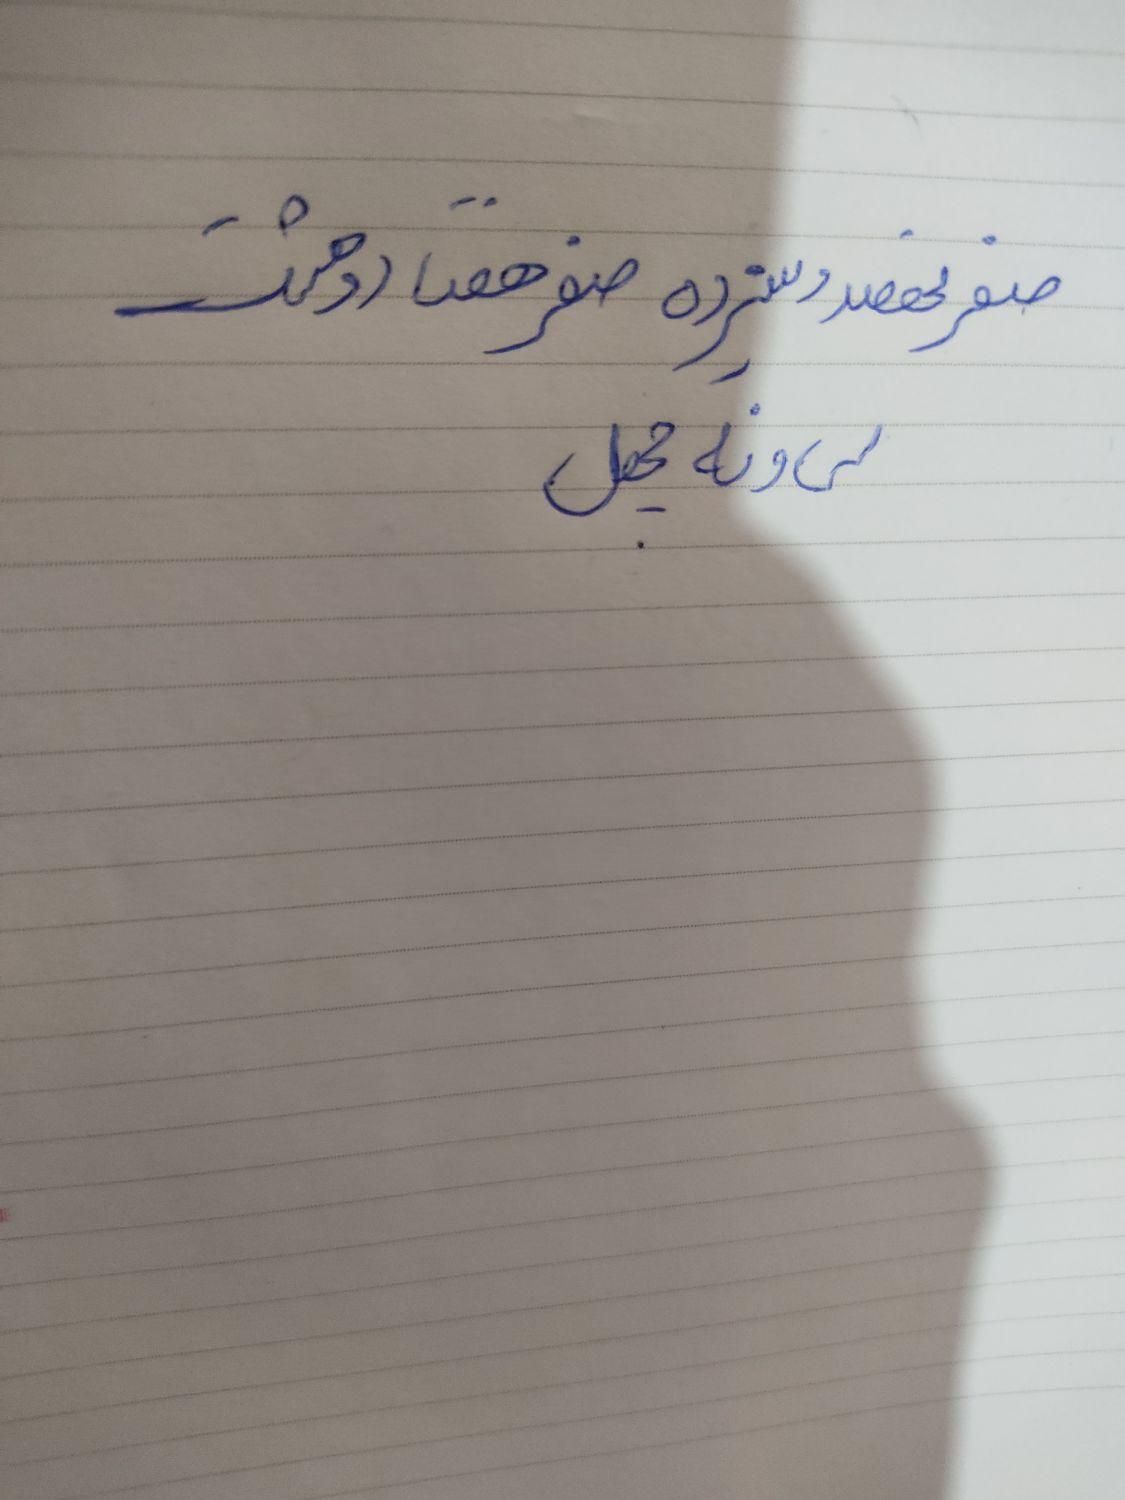 صفر نهصد و سیزده صفر هفتاد و هشت
سی و نه چهل